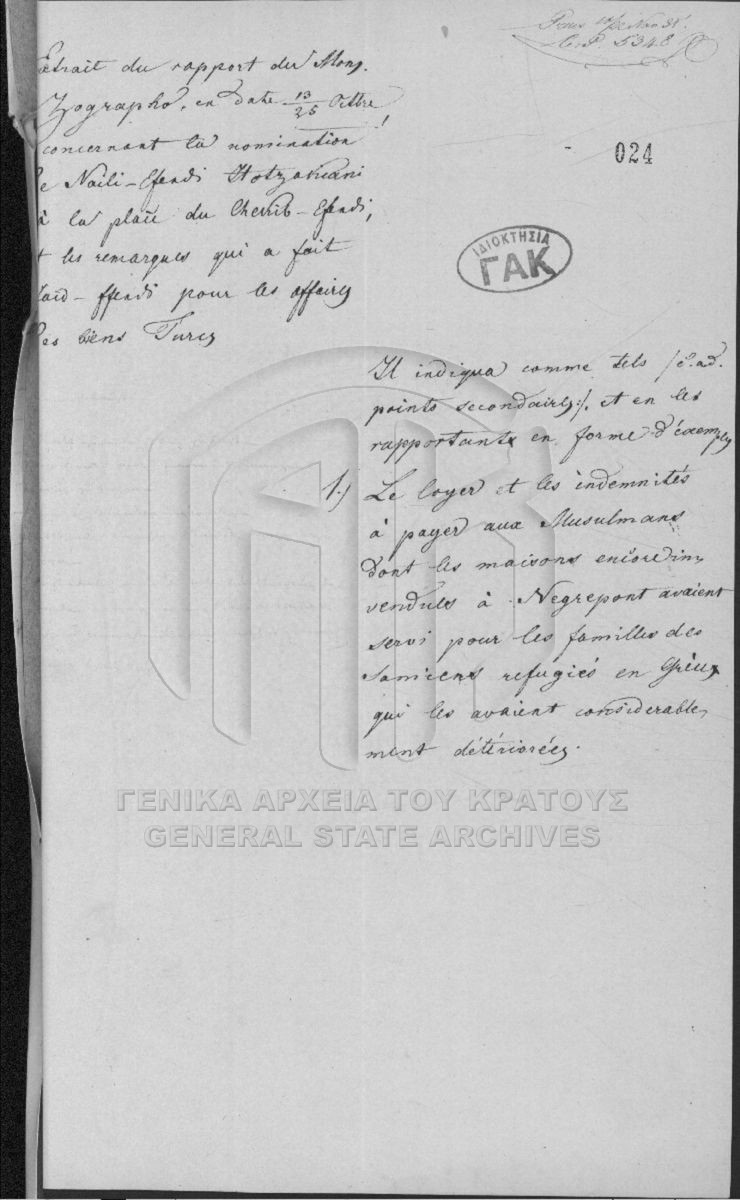 5348
Extrait du rapport du Mons.
Zographo, en date 13/25 Octbre,
concernant la nomination
de Naili-Efendi
à la place du Chekib-Efendi,
et les remarques qui a fait
Said-Effendi pour les affaires
des biens Turcs
024
ΙΔΙΟΚΤΗΣΙΑ
ΓΑΚ
Il indiqua comme tels /c.ad.
points secondaires:/. et en les
rapportants en forme d'éxemples
1.) Le loyer et les indemnités
à payer aux Musulmans
dont les maisons encore in-
vendues à Negrepont avaient
servi pour les familles des
Samiens refugiés en Grèce,
qui les avaient considerable-
ment détériorées.
ΓΕΝΙΚΑ ΑΡΧΕΙΑ ΤΟΥ ΚΡΑΤΟΥΣ
GENERAL STATE ARCHIVES